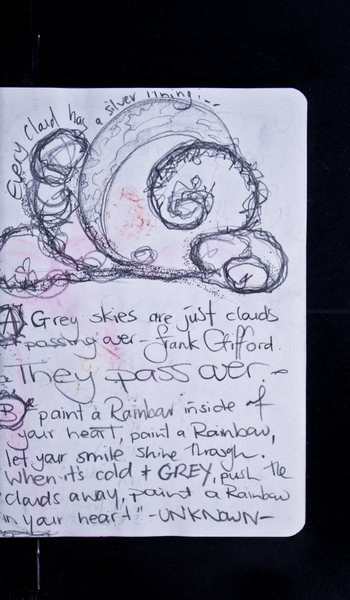 Every cloud has a silver lining...
(A) Grey skies are just clouds
passing over - Frank Gifford.
They pass over.~
(B) "paint a Rainbow inside of
your heart, paint a Rainbow,
let your smile shine through.
When it's cold & GREY, push the
clouds away, paint a Rainbow
in your heart" -UNKNOWN-